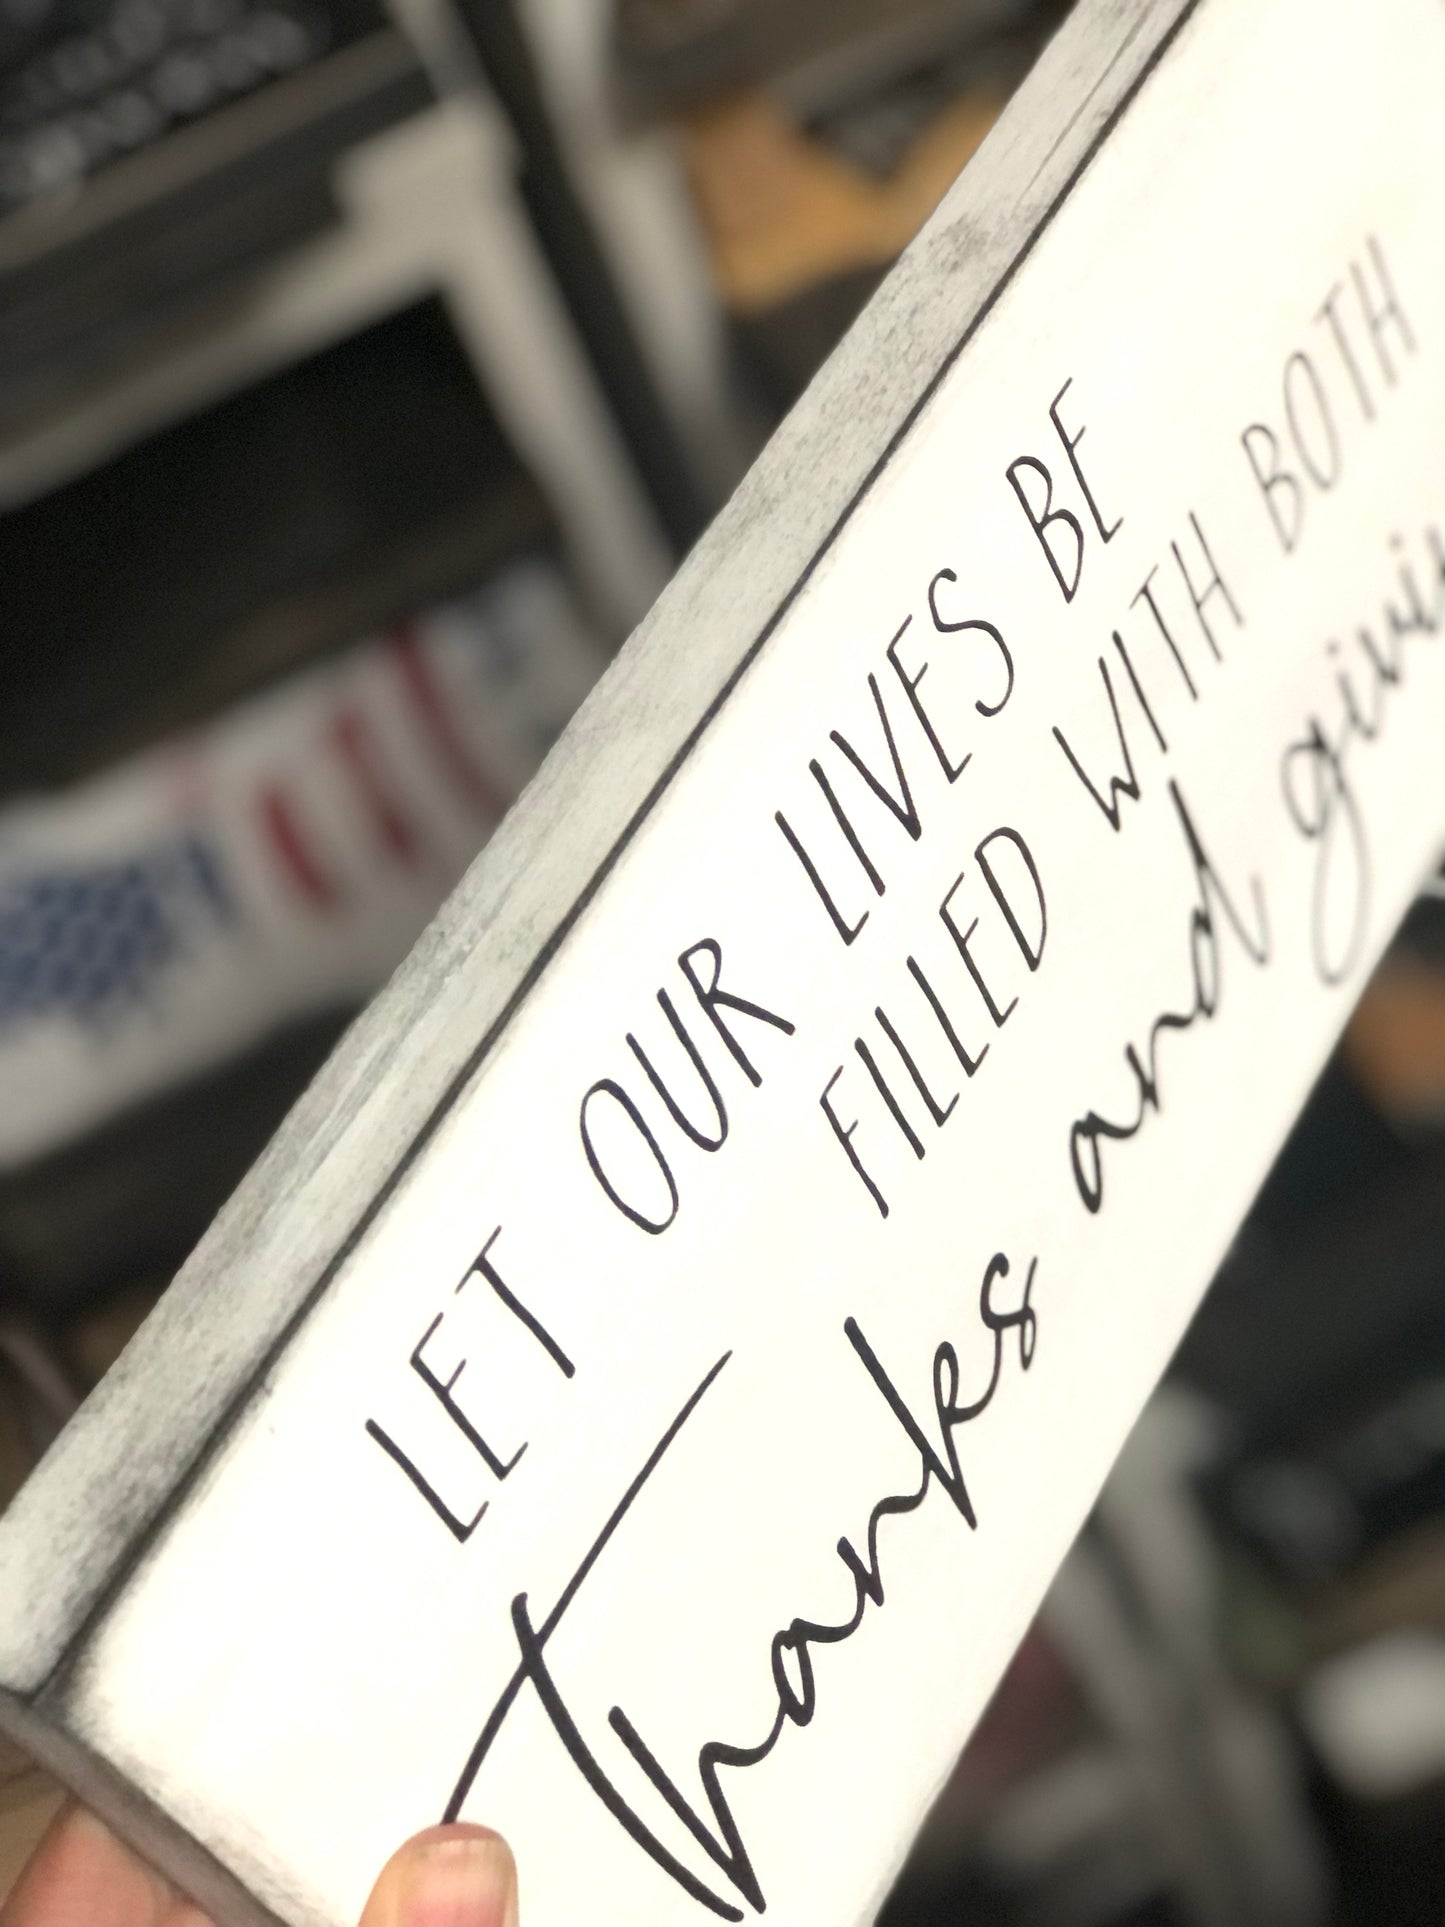 LET OUR LIVES BE
FILLED WITH BOTH
Thanks and givin